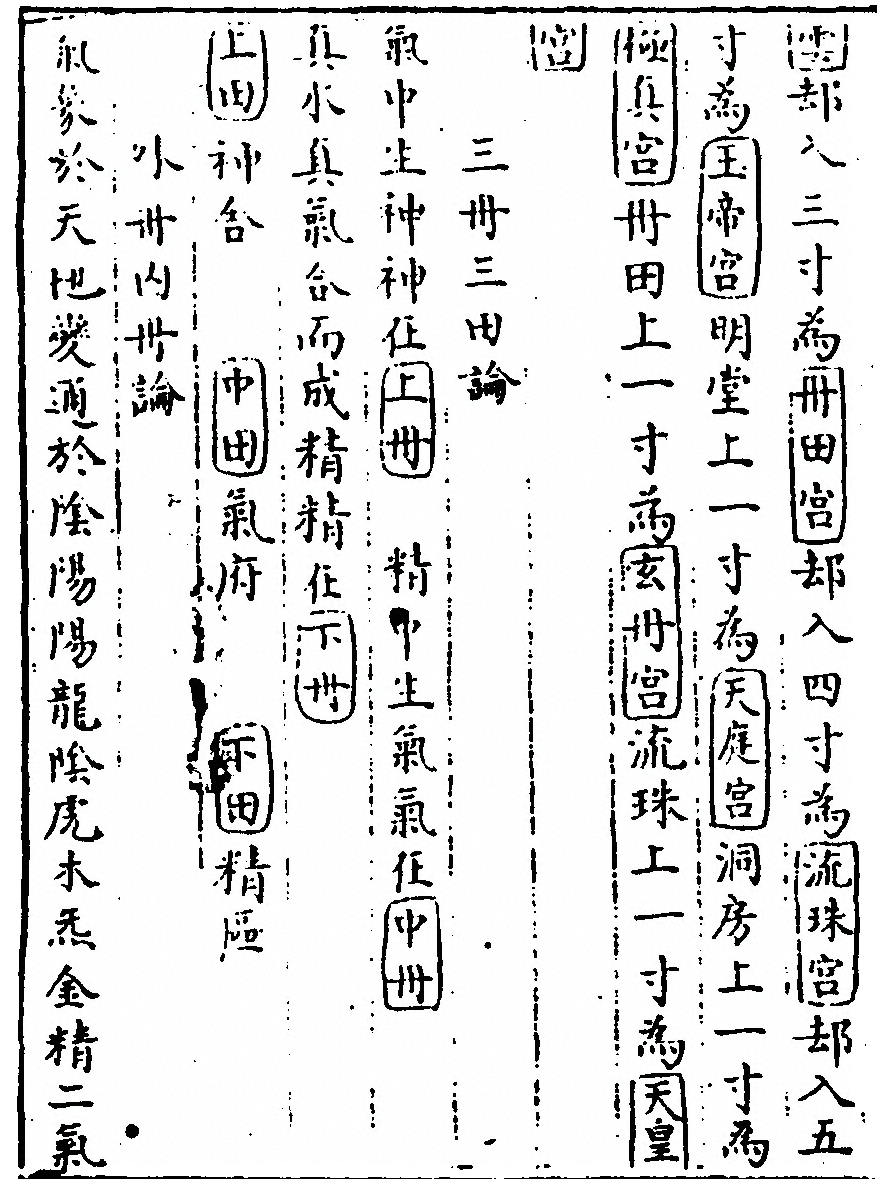 宮却入三寸為丹田宮却入四寸為流珠宮却入五
寸為玉帝宮明堂上一寸為天庭宮洞房上一寸為
極真宮丹田上一寸為玄丹宮流珠上一寸為天皇
宮
三丹三田論
氣中生神神在上丹 精中生氣氣在中丹
真水真氣合而成精精在下丹
上田神舍 中田氣府 下田精區
外丹內丹論
氣象於天地變通於陰陽陽龍陰虎木炁金精二氣